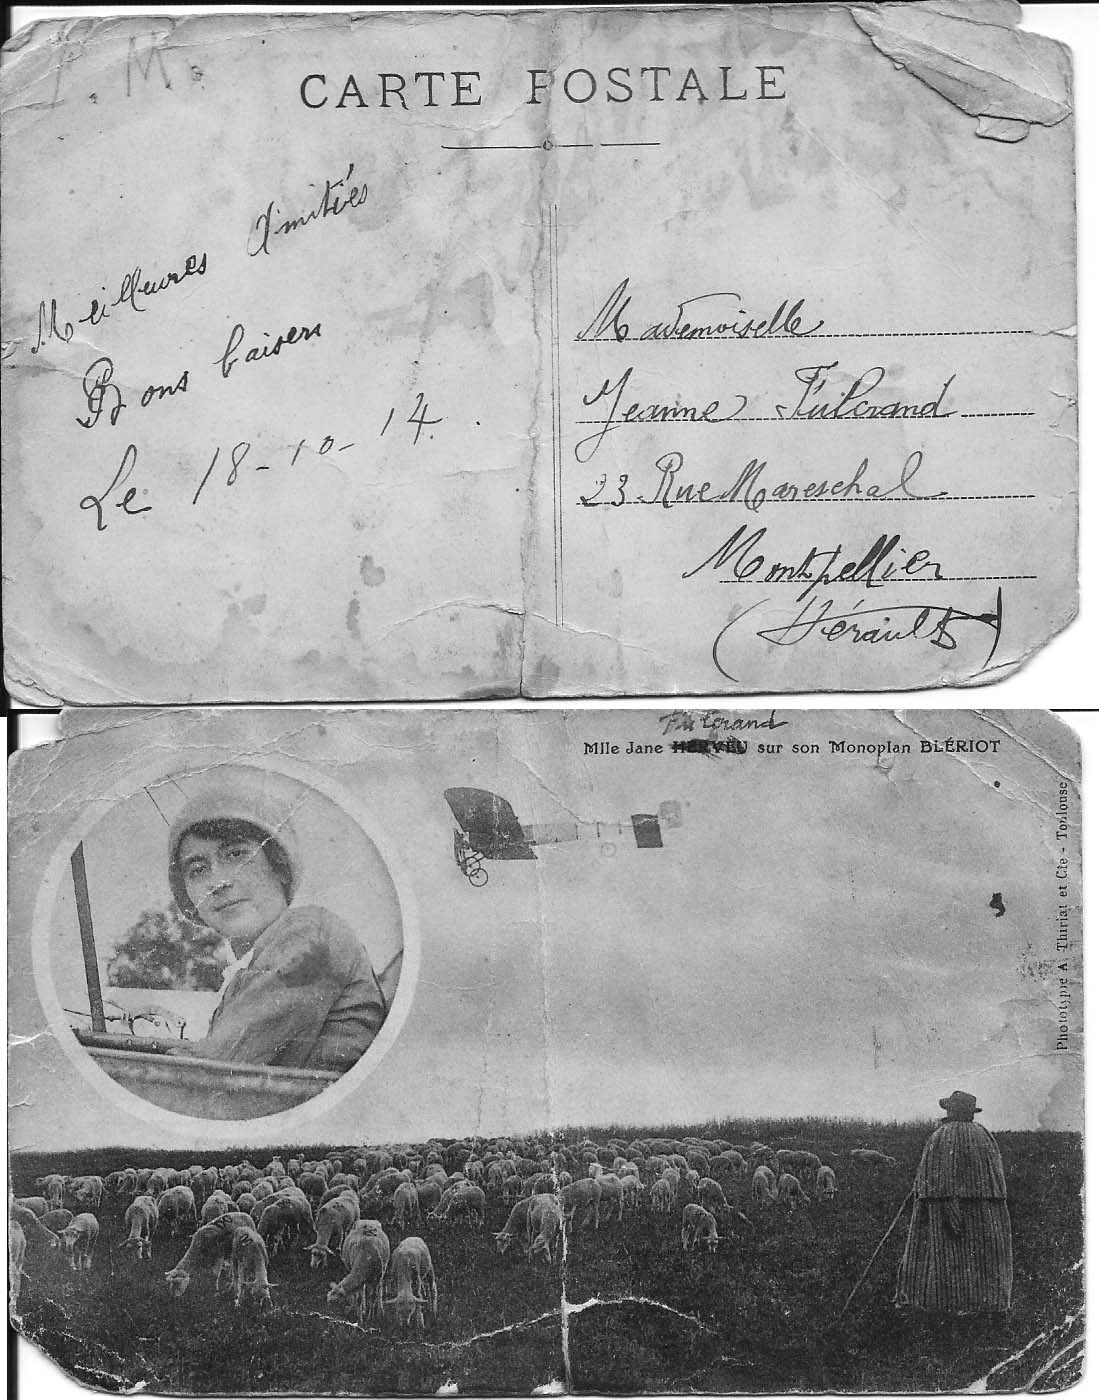 I. M.
CARTE POSTALE
Meilleures Amitiés
Bons baisers
Le 18-10-14.
Mademoiselle
Jeanne Fulcrand
23 Rue Mareschal
Montpellier
(Hérault)
Fulcrand
Mlle Jane HERVEU sur son Monoplan BLÉRIOT
Phototypie A. Thiriat et Cie - Toulouse